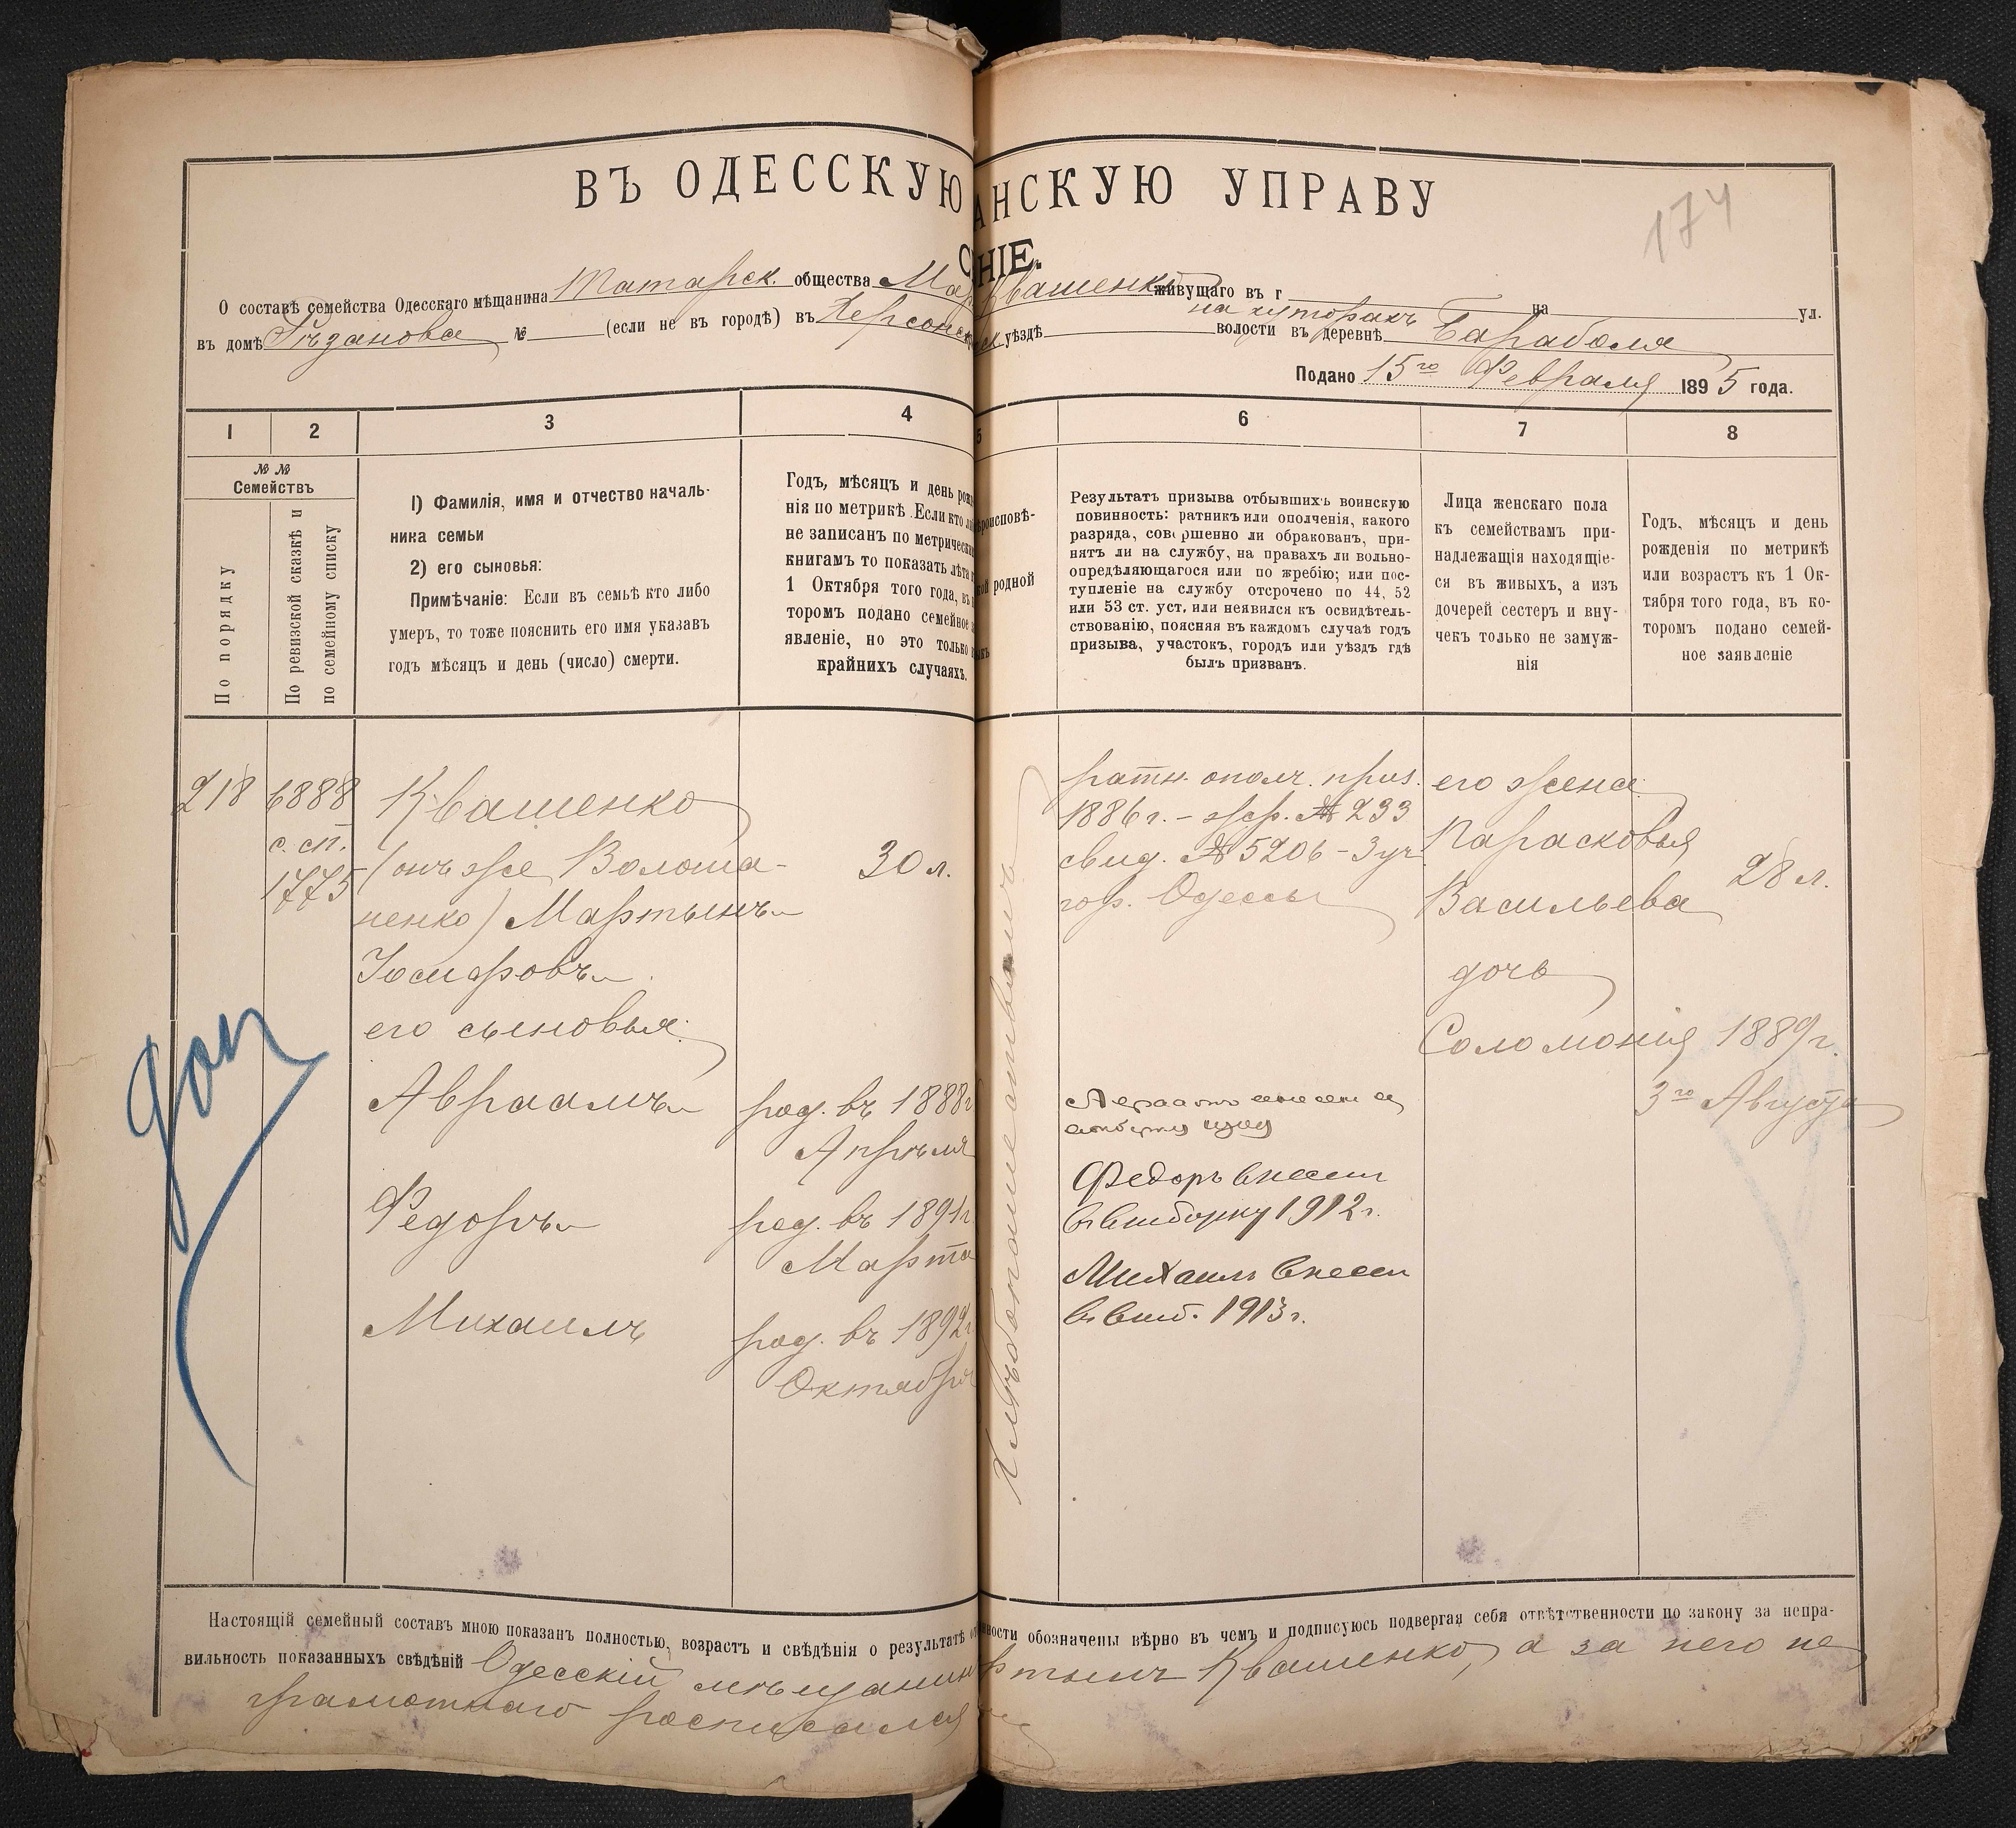 ВЪ ОДЕССКУЮ АНСКУЮ УПРАВУ
174
НІЕ.
О составѣ семейства Одесскаго мѣщанина Татарск. общества Мар Квашенко живущаго въ г на ул.
въ домѣ № (если не въ городѣ) въ Херсонск уѣздѣ волости въ деревнѣ на хуторахъ Бараболя
Подано 15го Февраля 1895 года.
1 2 3 4 5 6 7 8
№ № Семействъ
По порядку
По ревизской сказкѣ и по семейному списку
1) Фамилія, имя и отчество началь-
ника семьи
2) его сыновья:
Примѣчаніе: Если въ семьѣ кто либо
умеръ, то тоже пояснить его имя указавъ
годъ мѣсяцъ и день (число) смерти.
Годъ, мѣсяцъ и день рож
нія по метрикѣ. Если кто ли
не записанъ по метрически
книгамъ то показать лѣта
1 Октября того года, въ
торомъ подано семейное
явленіе, но это только
крайнихъ случаяхъ.
роисповѣ-
родной
Результатъ призыва отбывшихъ воинскую
повинность: ратникъ или ополченія, какого
разряда, совершенно ли обракованъ, при-
нятъ ли на службу, на правахъ ли вольно-
опредѣляющагося или по жребію; или пос-
тупленіе на службу отсрочено по 44, 52
или 53 ст. уст. или неявился къ освидѣтель-
ствованію, поясняя въ каждомъ случаѣ годъ
призыва, участокъ, городъ или уѣздъ гдѣ
былъ призванъ.
Лица женскаго пола
къ семействамъ при-
надлежащія находящіе-
ся въ живыхъ, а изъ
дочерей сестеръ и вну-
чекъ только не замуж-
нія
Годъ, мѣсяцъ и день
рожденія по метрикѣ
или возрастъ къ 1 Ок-
тября того года, въ ко-
торомъ подано семей-
ное заявленіе
218
6888
с. сп.
1775
Квашенко
(онъ же Волоша-
ненко) Мартынъ
Іосифовъ
его сыновья:
Авраамъ
Федоръ
Михаилъ
30 л.
род. въ 1888г
Апрѣля
род. въ 1891г
Марта
род. въ 1892г
Октября
Хлѣбопашествомъ
ратн. ополч. приз.
1886 г. – жр. № 233
свид. № 5206 – 3 уч
гор. Одессы
Федоръ внесен
въ выборку 1912 г.
Михаилъ внесен
въ выб. 1913 г.
его жена:
Парасковья
Васильева
28 л.
дочь
Соломонія 1889 г.
3го Августа
доп
Настоящій семейный составъ мною показанъ полностью, возрастъ и свѣдѣнія о результатѣ нности обозначены вѣрно въ чемъ и подписуюсь подвергая себя отвѣтственности по закону за непра-
вильность показанныхъ свѣдѣній Одесскій мѣщанин ртынъ Квашенко, а за него не
грамотнаго росписался